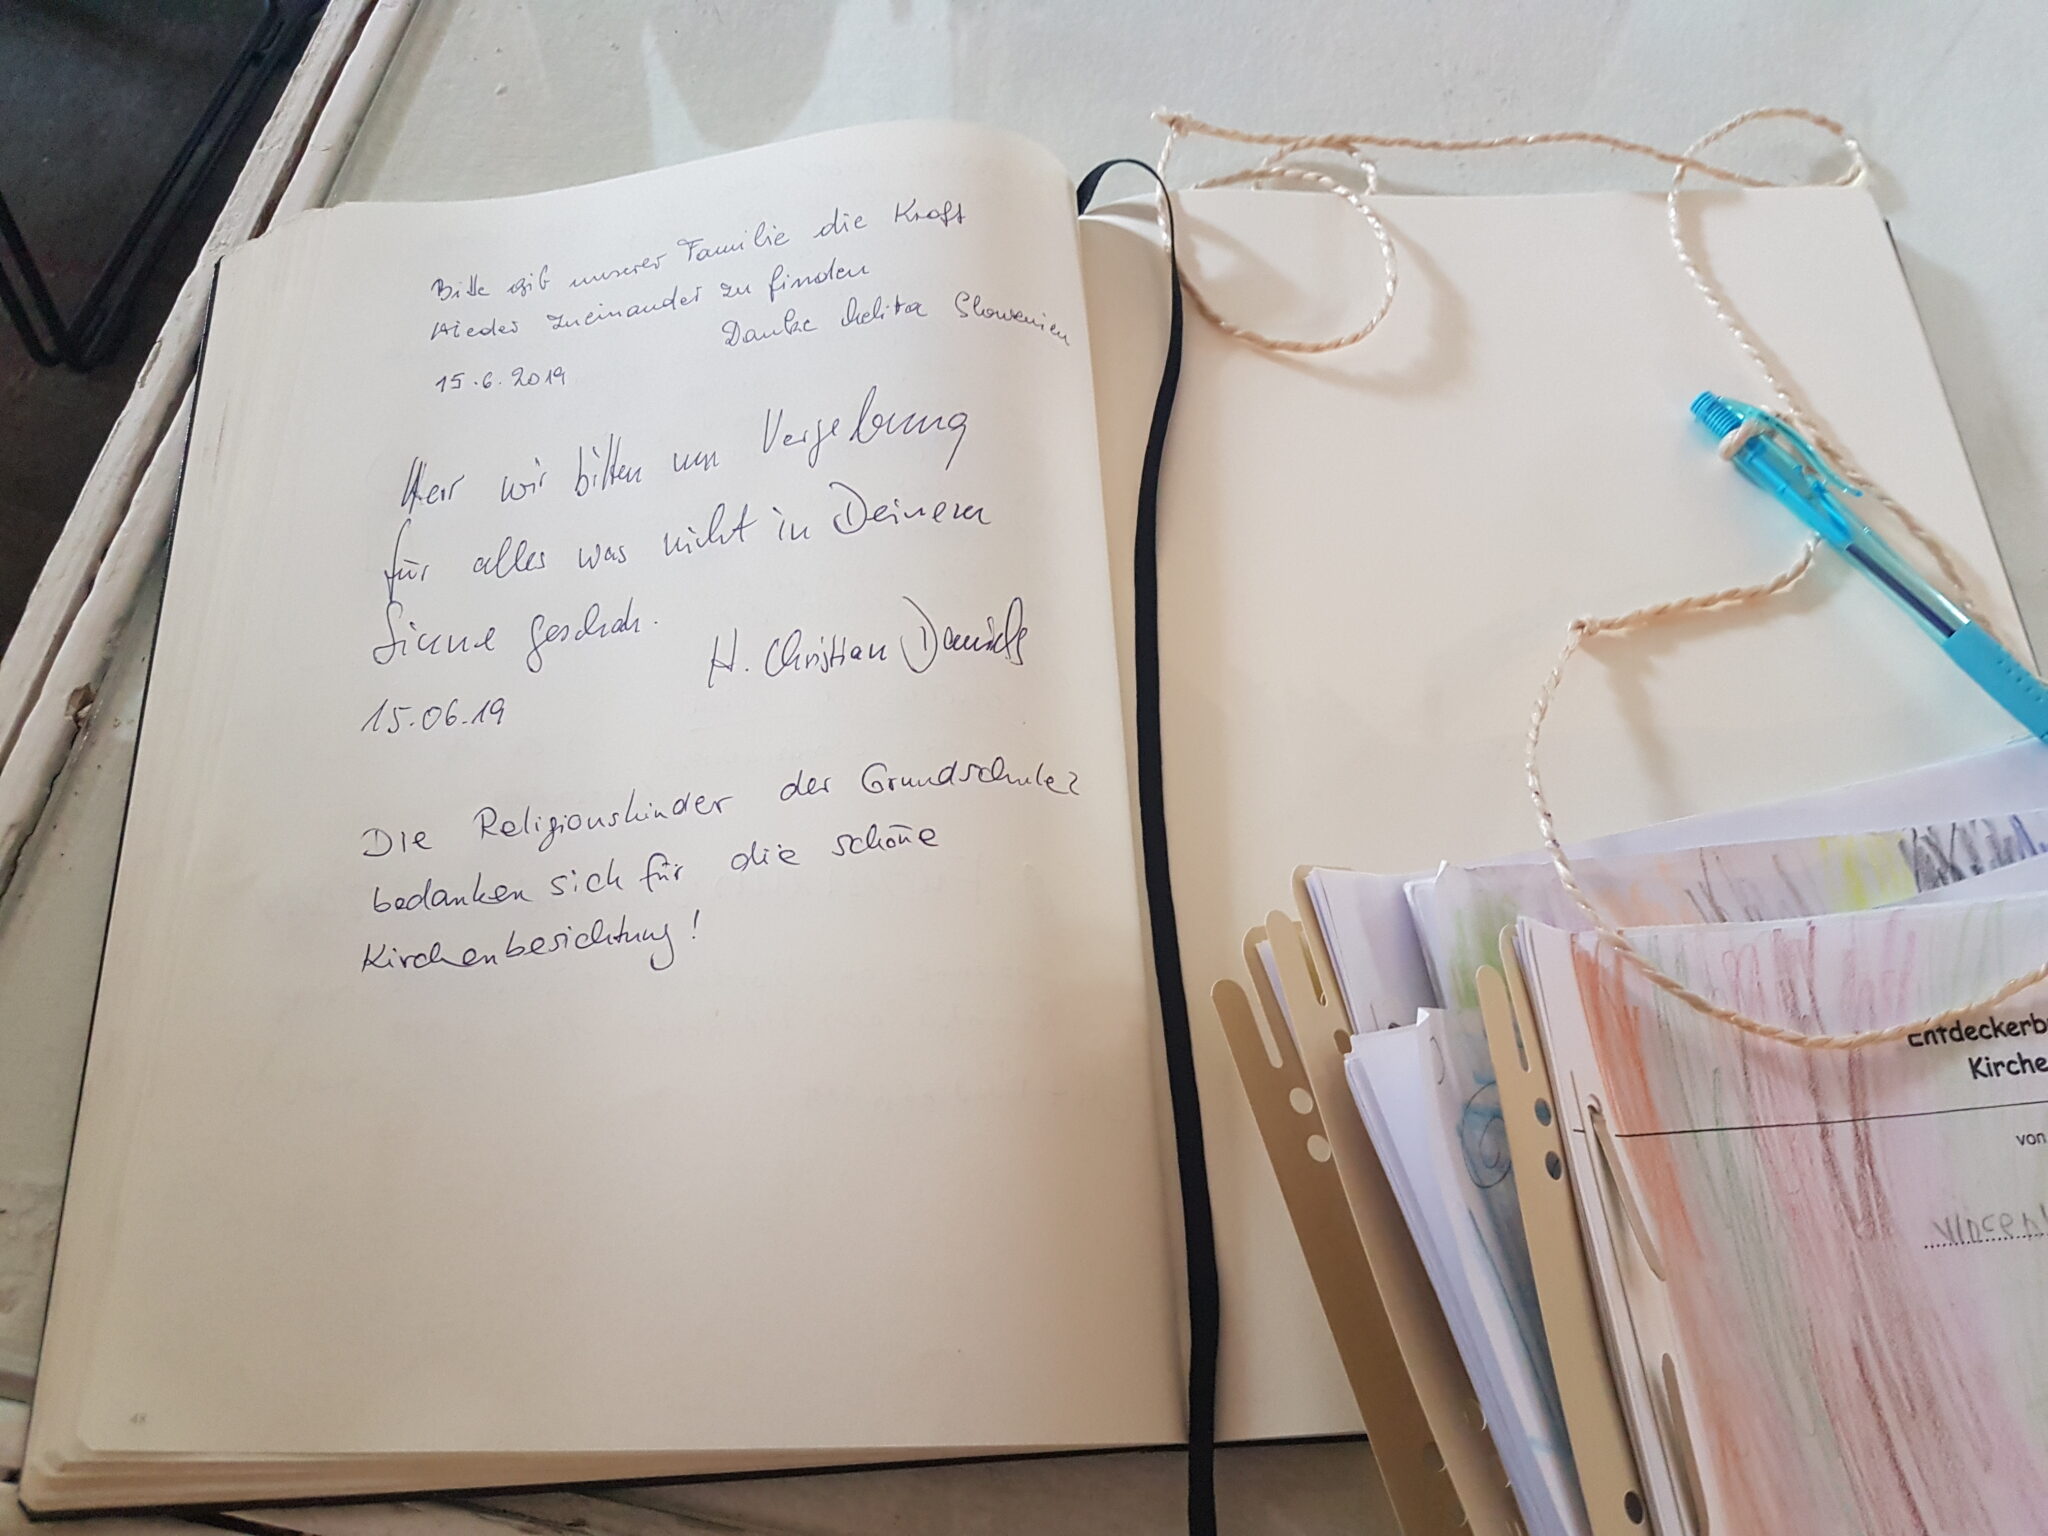 Bitte gib unserer Familie die Kraft
wieder zueinander zu finden
Danke Melita Slowenien
15.6.2019
Herr wir bitten um Vergebung
für alles was nicht in Deinem
Sinne geschah.
H. Christian Daniels
15.06.19
Die Religionskinder der Grundschule 2
bedanken sich für die schöne
Kirchenbesichtung!
48
Entdeckerb
Kirche
von